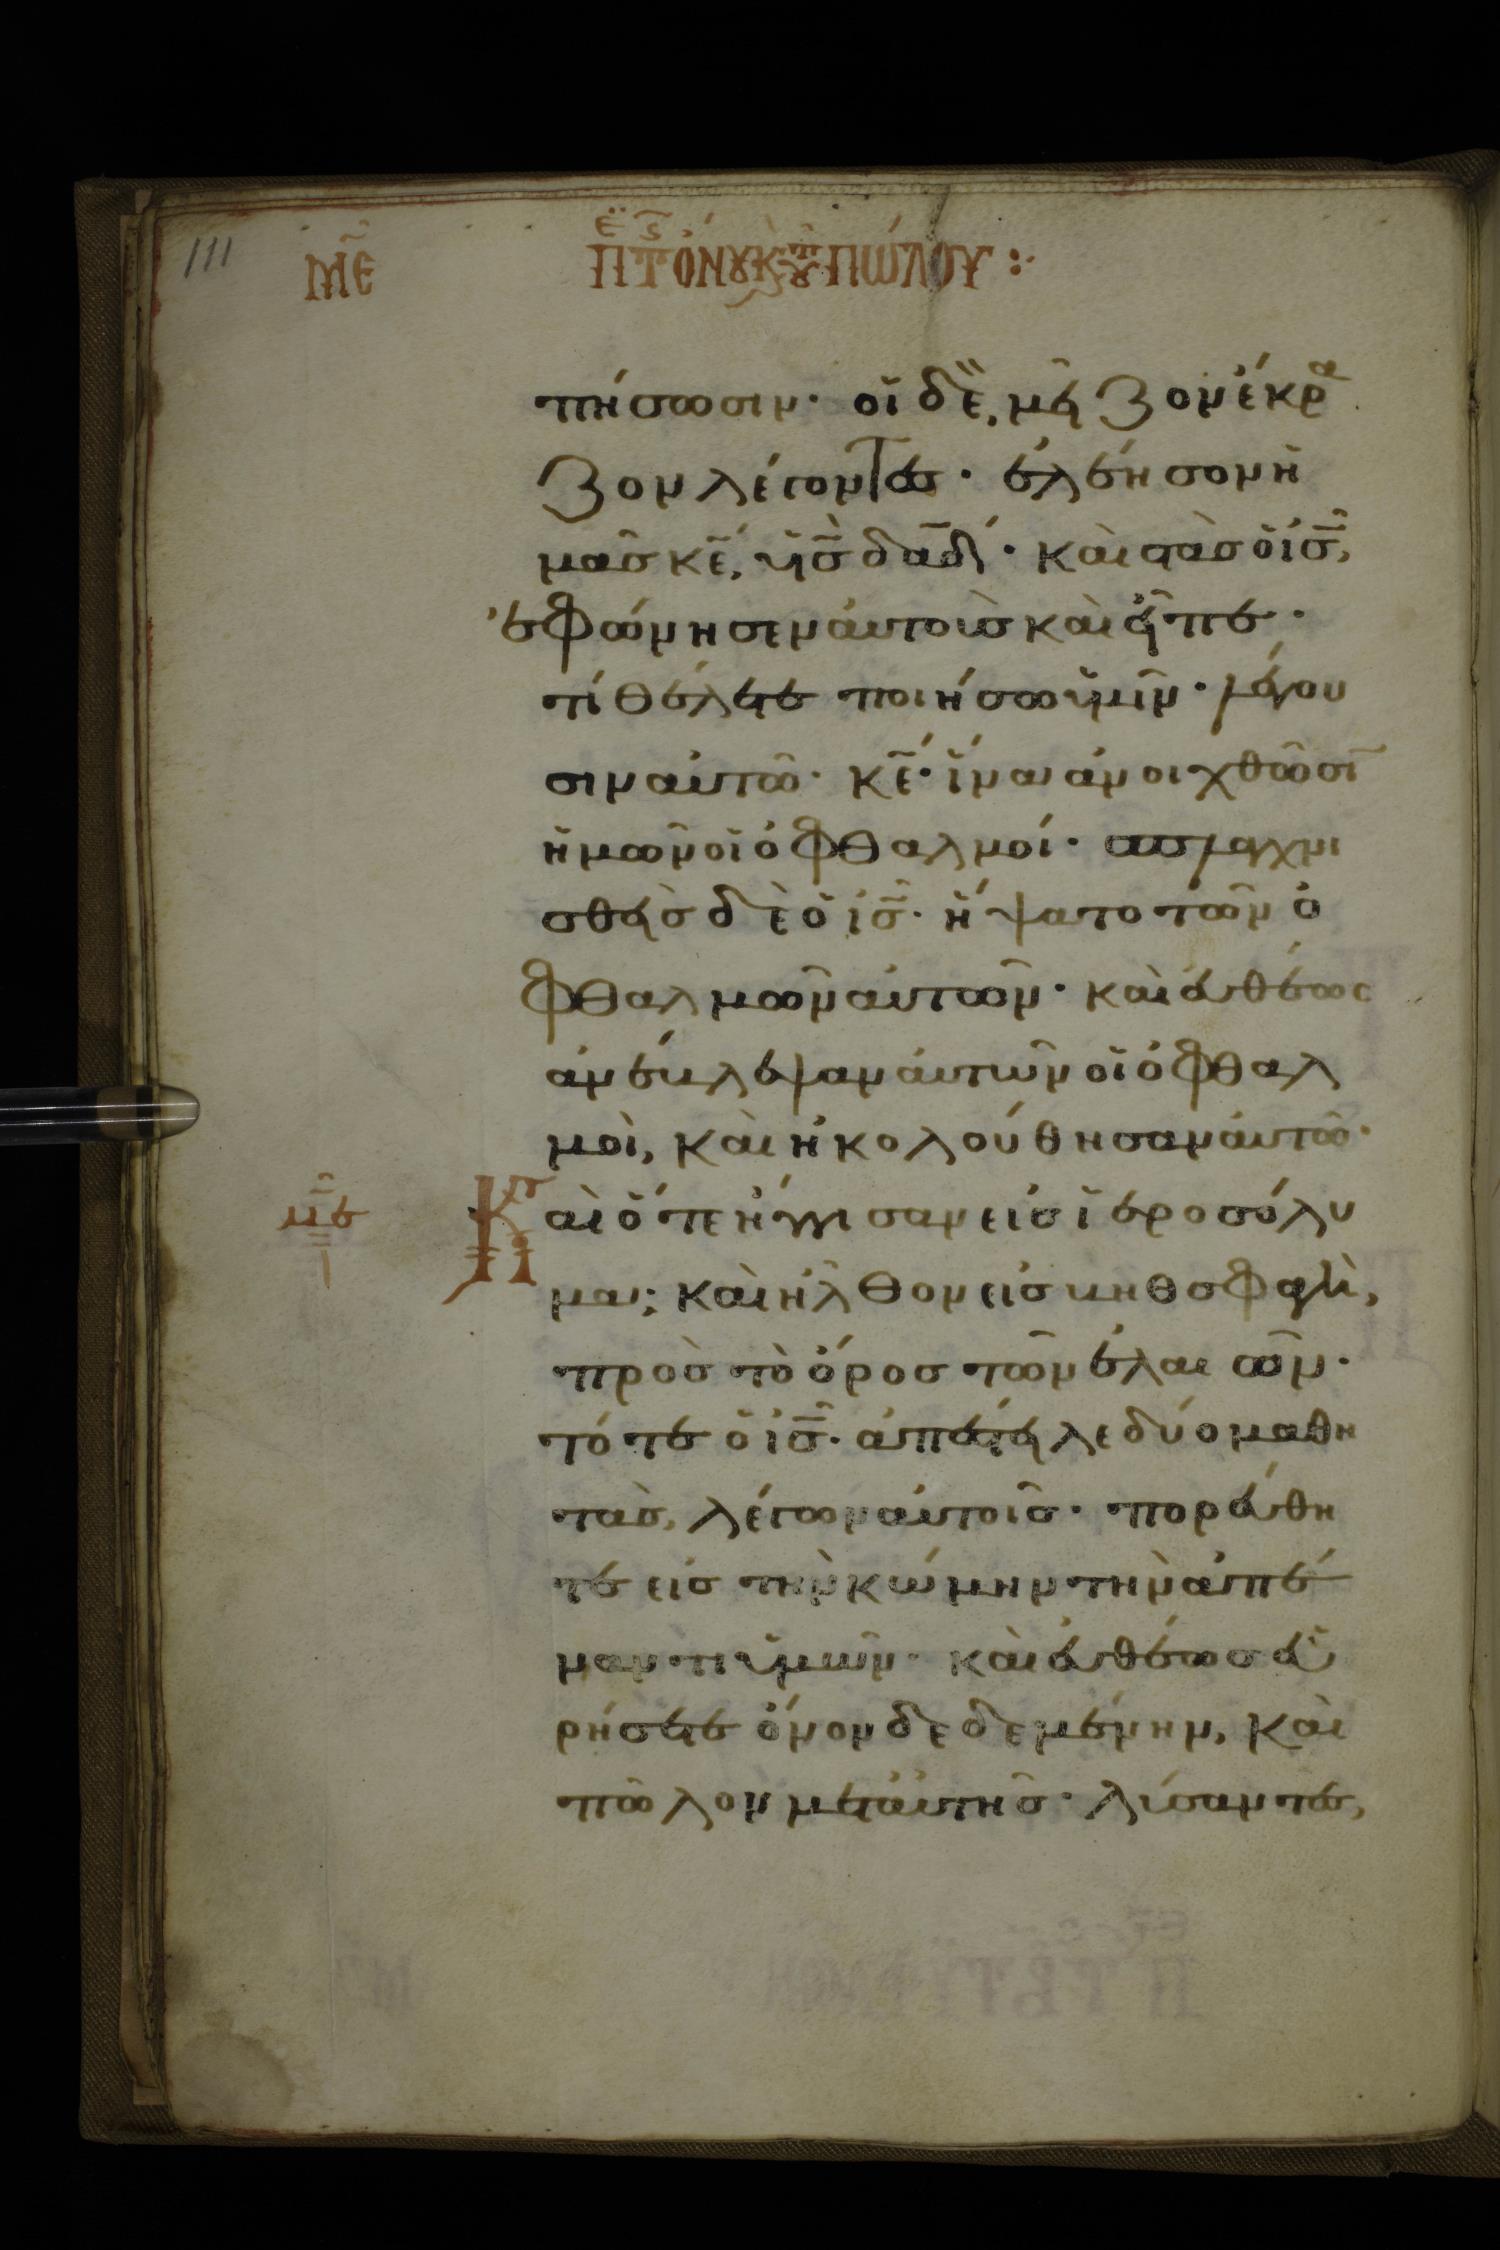 111
ΜΕ
ΠΕΡῚ Τῆς ὌΝΟΥ Κ(ΑῚ) ΤΟῦ ΠΏΛΟΥ :
πήσωσιν· οἱ δὲ, μεῖζον ἔκρα
ζον λέγοντες· ἐλέησον ἡ
μᾶς κε̄, υἱὸς δα̅δ· καὶ στὰς ὁ ισ̅,
ἐφώνησεν αὐτοὺς καὶ εἶπε·
τί θέλετε ποιήσω ὑμῖν· λέγου
σιν αὐτῶ· κε̄· ἵνα ἀνοιχθῶσῑ
ἡμῶν οἱ ὀφθαλμοί· σπλαγχνι
σθεὶς δὲ ὁ ισ̅· ἥψατο τῶν ὀ
φθαλμῶν αὐτῶν· καὶ εὐθέως
ἀνέβλεψαν αὐτῶν οἱ ὀφθαλ
μοὶ, καὶ ἠκολούθησαν αὐτῶ·
με̄
Καὶ ὅτε ἤγγισαν εἰς ἱεροσόλυ
μα; καὶ ἦλθον εἰς βηθσφαγὶ,
πρὸς τὸ ὄρος τῶν ἐλαιῶν·
τότε ὁ ισ̅· ἀπέστειλε δύο μαθη
τὰς, λέγων αὐτοῖς· πορεύθη
τε εἰς τὴν κώμην τὴν ἀπέ
ναντι ὑμῶν· καὶ εὐθέως εὑ
ρήσετε ὄνον δεδεμένην, καὶ
πῶλον μετ' αὐτῆς· λύσαντες,